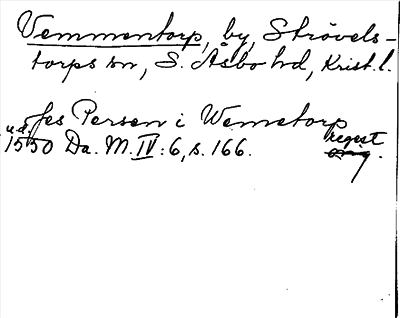 Vemmentorp, by, Strövels-
torps sn, S. Åsbo hd, Krist. l.
Jes Persen i Wemetorp
u.d. 1550 Da. M. IV: 6, s. 166. regist